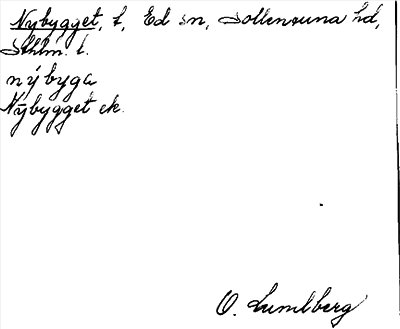 Nybygget, t, Ed sn, Sollentuna hd,
Sthlm. l.
nýbyga
Nybygget ek.
O. Lundberg